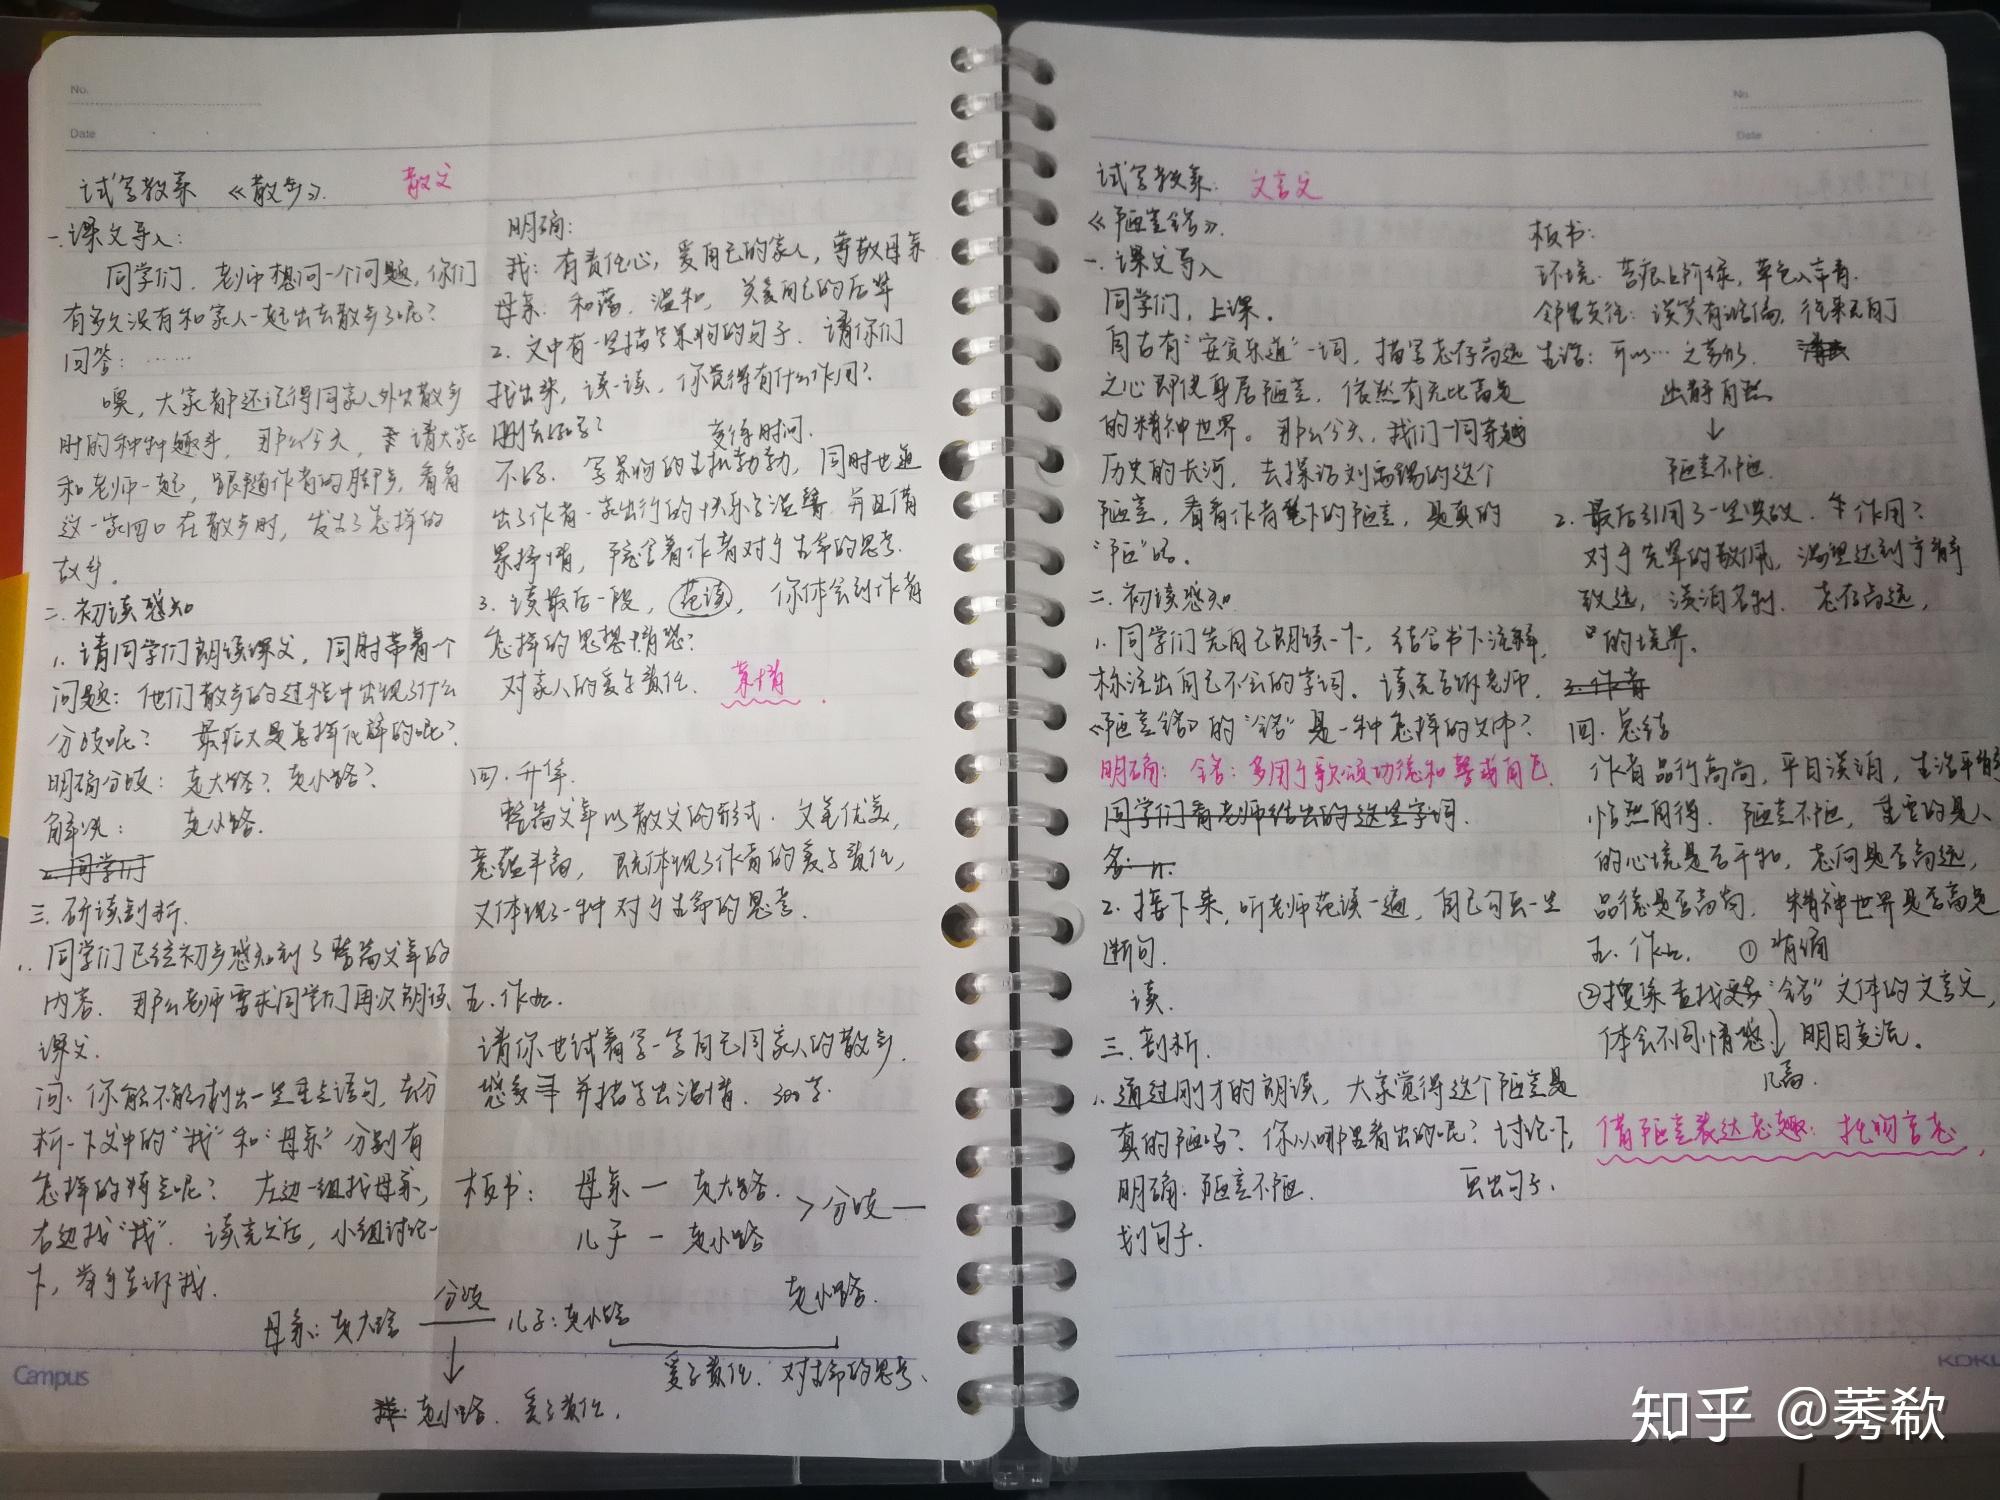 No.
Date
试写教案 《散步》. 散文
一.课文导入:
同学们,老师想问一个问题,你们
有多久没有和家人一起出去散步了呢?
回答: ……
噢,大家都还记得同家人外出散步
时的种种趣事,那么今天,请大家
和老师一起,跟随作者的脚步,看看
这一家四口在散步时,发生了怎样的
故事。
二.初读感知
1.请同学们朗读课文,同时带着一个
问题:他们散步的过程中出现了什么
分歧呢?最后又是怎样化解的呢?
明确分歧:走大路?走小路?
解决: 走小路.
2.同学们
三.研读剖析.
1.同学们已经初步感知到了整篇文章的
内容.那么老师需求同学们再次朗读
课文.
问:你能不能划出一些重点语句,去分
析一下文中的"我"和"母亲"分别有
怎样的特点呢?左边一组找母亲,
右边找"我".读完之后,小组讨论一
下,举手告诉我.
母亲:走大路 分歧 儿子:走小路
走小路. 爱与责任.
明确:
我:有责任心,爱自己的家人,尊敬母亲
母亲:和蔼,温和,关爱自己的后辈
2.文中有一些描写景物的句子.请你们
找出来,读一读,你觉得有什么作用?
删去好吗?
不好.写景物的生机勃勃,同时也道
出了作者一家出行的快乐与温馨.并且借
景抒情,蕴含着作者对于生命的思考.
3.读最后一段,范读,你体会到作者
怎样的思想情感?
对家人的爱与责任.
四.升华.
整篇文章以散文的形式.文笔优美,
意蕴丰富,既体现了作者的爱与责任,
又体现了一种对于生命的思考.
五.作业.
请你也试着写一写自己同家人的散步.
并描写出温情.300字.
板书: 母亲一 走大路.
儿子一 走小路
>分歧—
走小路.
爱与责任.对生命的思考.
Campus
No.
Date
试写教案: 文言文
《陋室铭》.
一.课文导入
同学们,上课.
自古有"安贫乐道"一词,描写志存高远
之心即使身居陋室,依然有无比高远
的精神世界。那么今天,我们一同穿越
历史的长河,去探访刘禹锡的这个
陋室,看看作者笔下的陋室,是真的
"陋"吗.
二.初读感知.
1.同学们先自己朗读一下,结合书下注释,
标注出自己不会的字词.读完告诉老师.
《陋室铭》的"铭"是一种怎样的文体?
明确: 铭:多用于歌颂功德和警戒自己.
同学们看老师给出的这些字词.
2.接下来,听老师范读一遍,自己句画一些
断句.
读.
三.剖析.
1.通过刚才的朗读,大家觉得这个陋室是
真的陋吗?你从哪里看出的呢?讨论一下,
明确:陋室不陋. 画出句子.
划句子.
板书:
环境:苔痕上阶绿,草色入帘青.
邻里交往:谈笑有鸿儒,往来无白丁
生活:可以…之劳形.
陋室不陋.
2.最后引用了一些典故.作用?
对于先辈的敬佩,渴望达到宁静
致远,淡泊名利.志存高远,
的境界.
3.作者
四.总结
作者品行高尚,平日淡泊,生活平静
怡然自得.陋室不陋,重要的是人
的心境是否平和,志向是否高远,
品德是否高尚,精神世界是否高远
五.作业. ①背诵
②搜集查找"铭"文体的文言文,
体会不同情感 明日交流.
几篇.
借陋室表达志趣:托物言志.
知乎 @莠欷